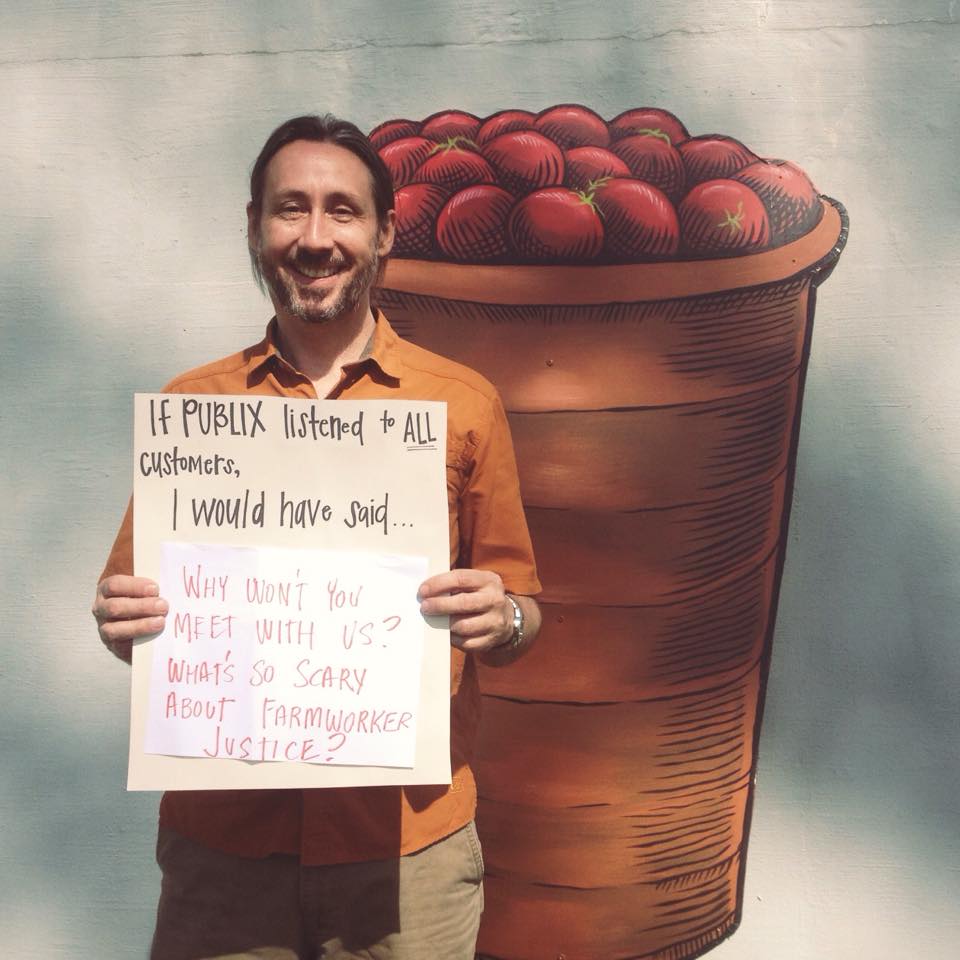 IF PUBLIX listened to ALL
customers,
I would have said...
WHY WON'T YOU
MEET WITH US?
WHAT'S SO SCARY
ABOUT FARMWORKER
JUSTICE?